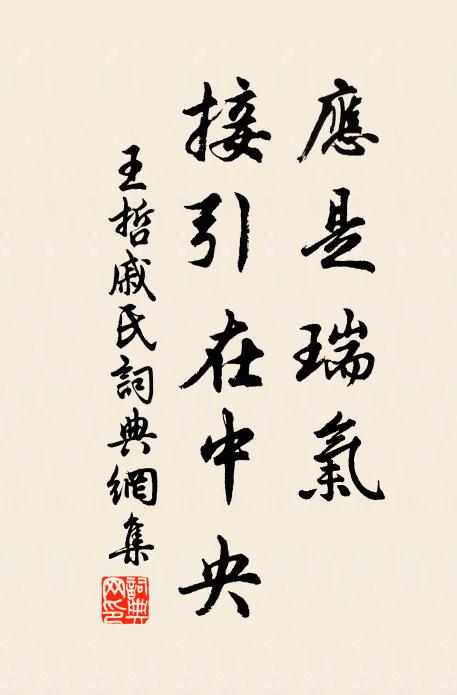 應是瑞氣
接引在中央
王哲戚氏詞典網集
詞典
网印